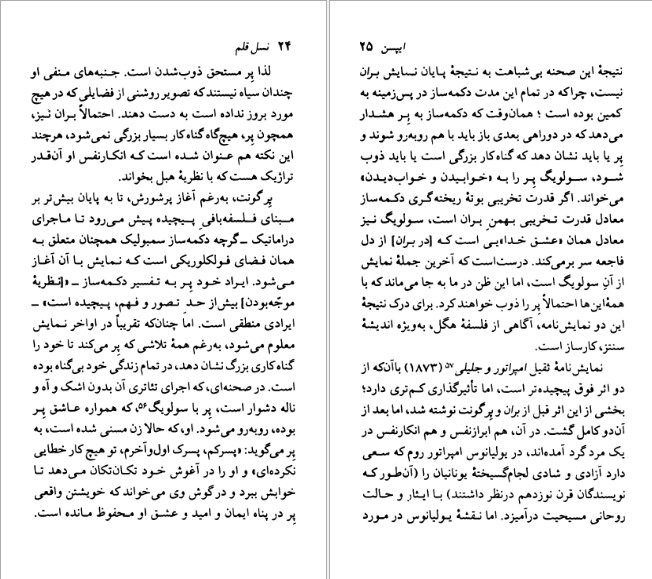 ۲۴ نسل قلم
لذا پِر مستحق ذوب‌شدن است. جنبه‌های منفی او
چندان سیاه نیستند که تصویر روشنی از فضایلی که در هیچ
مورد بروز نداده است به دست دهند. احتمالاً بران نیز،
همچون پِر، هیچ‌گاه گناه‌کار بسیار بزرگی نمی‌شود، هرچند
این نکته هم عنوان شده است کـه انکـارنفس او آن‌قـدر
تراژیک هست که با نظریهٔ هبل بخواند.
پرگونت، به‌رغم آغاز پرشورش، تا به پایان بیش‌تر بر
مـبنای فـلسفه‌بافیِ پـیچیده پـیش مـی‌رود تـا مـاجرای
درامـاتیک ــ گرچه دکمه‌ساز سمبولیک همچنان متعلق به
همان فضای فولکلوریکی است که نمایش با آن آغاز
می‌شود. ایراد خود پِر به تفسیر دکمه‌ساز ــ «[نظریهٔ
موجّه‌بودن] بیش از حد تصور و فهم، پیچیده است» ــ
ایرادی منطقی است. اما چنان‌که تقریباً در اواخر نمایش
معلوم می‌شود، به‌رغم همهٔ تلاشی که پِر می‌کند تا خود را
گناه‌کاری بزرگ نشان دهد، در تمام زندگی خود بی‌گناه بوده
است. در صحنه‌ای، که اجرای تئاتری آن بدون اشک و آه و
ناله دشوار است، پِر با سولویگ۵۶، که همواره عاشق پِر
بوده، روبه‌رو می‌شود. او، که حالا زن مسنی شده است، به
پِر می‌گوید: «پسرکم، پسرک اول‌وآخرم، تو هیچ کار خطایی
نکرده‌ای» و او را در آغوش خود تکان‌تکان می‌دهد تا
خوابش ببرد و درگوش وی می‌خواند که خویشتن واقعی
پِر در پناه ایمان و امید و عشق او محفوظ مانده است.
ایپسن ۲۵
نتیجهٔ این صحنه بی‌شباهت به نتیجهٔ پایان نمایش بران
نیست، چراکه در تمام این مدت دکمه‌ساز در پس‌زمینه به
کمین بوده است؛ همان‌وقت که دکمه‌ساز به پِر هشدار
می‌دهد که در دوراهی بعدی باز باید با هم روبه‌رو شوند و
پِر یا باید نشان دهد که گناه‌کار بزرگی است یا باید ذوب
شـود، سـولویگ پِر را بـه «خوابیدن و خواب‌دیدن»
می‌خواند. اگر قدرت تخریبی بوتهٔ ریخته‌گری دکمه‌ساز
معادل قدرت تخریبی بهمنِ بران است، سولویگ نیز
معادل همان «عشق خدا»یی است که [در بران] از دل
فاجعه سر برمی‌کند. درست‌است که آخرین جملهٔ نمایش
از آنِ سولویگ است، اما این ظن در ما به جا می‌ماند که با
همهٔ این‌ها احتمالاً پِر را ذوب خواهند کرد. برای درک نتیجهٔ
این دو نمایش‌نامه، آگاهی از فلسفهٔ هگل، به‌ویژه اندیشهٔ
سنتز، کارساز است.
نمایش‌نامهٔ ثقیل امپراتور و جلیلی۵۷ (۱۸۷۳) باآن‌که از
دو اثر فوق پیچیده‌تر است، اما تأثیرگذاری کم‌تری دارد؛
بخشی از این اثر قبل از بران و پرگونت نوشته شد، اما بعد از
آن‌دو کامل گشت. در آن، هم ابرازنفس و هم انکارنفس در
یک مرد گرد آمده‌اند، در یولیانوس امپراتور روم که سعی
دارد آزادی و شادی لجام‌گسیختهٔ یونانیان را (آن‌طور کـه
نویسندگان قرن نوزدهم درنظر داشتند) با ایثار و حالت
روحانی مسیحیت درآمیزد. اما نقشهٔ یولیانوس در مورد